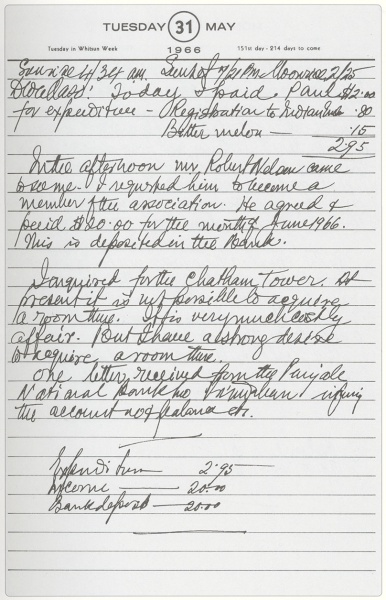 TUESDAY 31 MAY
Tuesday in Whitsun Week 1966 151st day - 214 days to come
Sunrise 4/34 am. Sunset 7/21 PM Moonrise 2/25
Today I paid Paul $2.00
for expenditure - Registration to Indian .80
Bitter melon — .15
2.95
In the afternoon mr Robert Nelson came
to see me - I requested him to become a
member of the association. He agreed &
paid $20.00 for the month of June 1966.
This is deposited in the Bank.
I inquired for the Chatham Tower. At
present it is not possible to acquire
a room there. It is very much costly
affair. But I have a strong desire
to acquire a room there.
One letter received from the Punjab
National Bank Vrindaban infming
the account not balance etc.
Expenditure 2.95
Income — 20.00
Bank deposit — 20.00